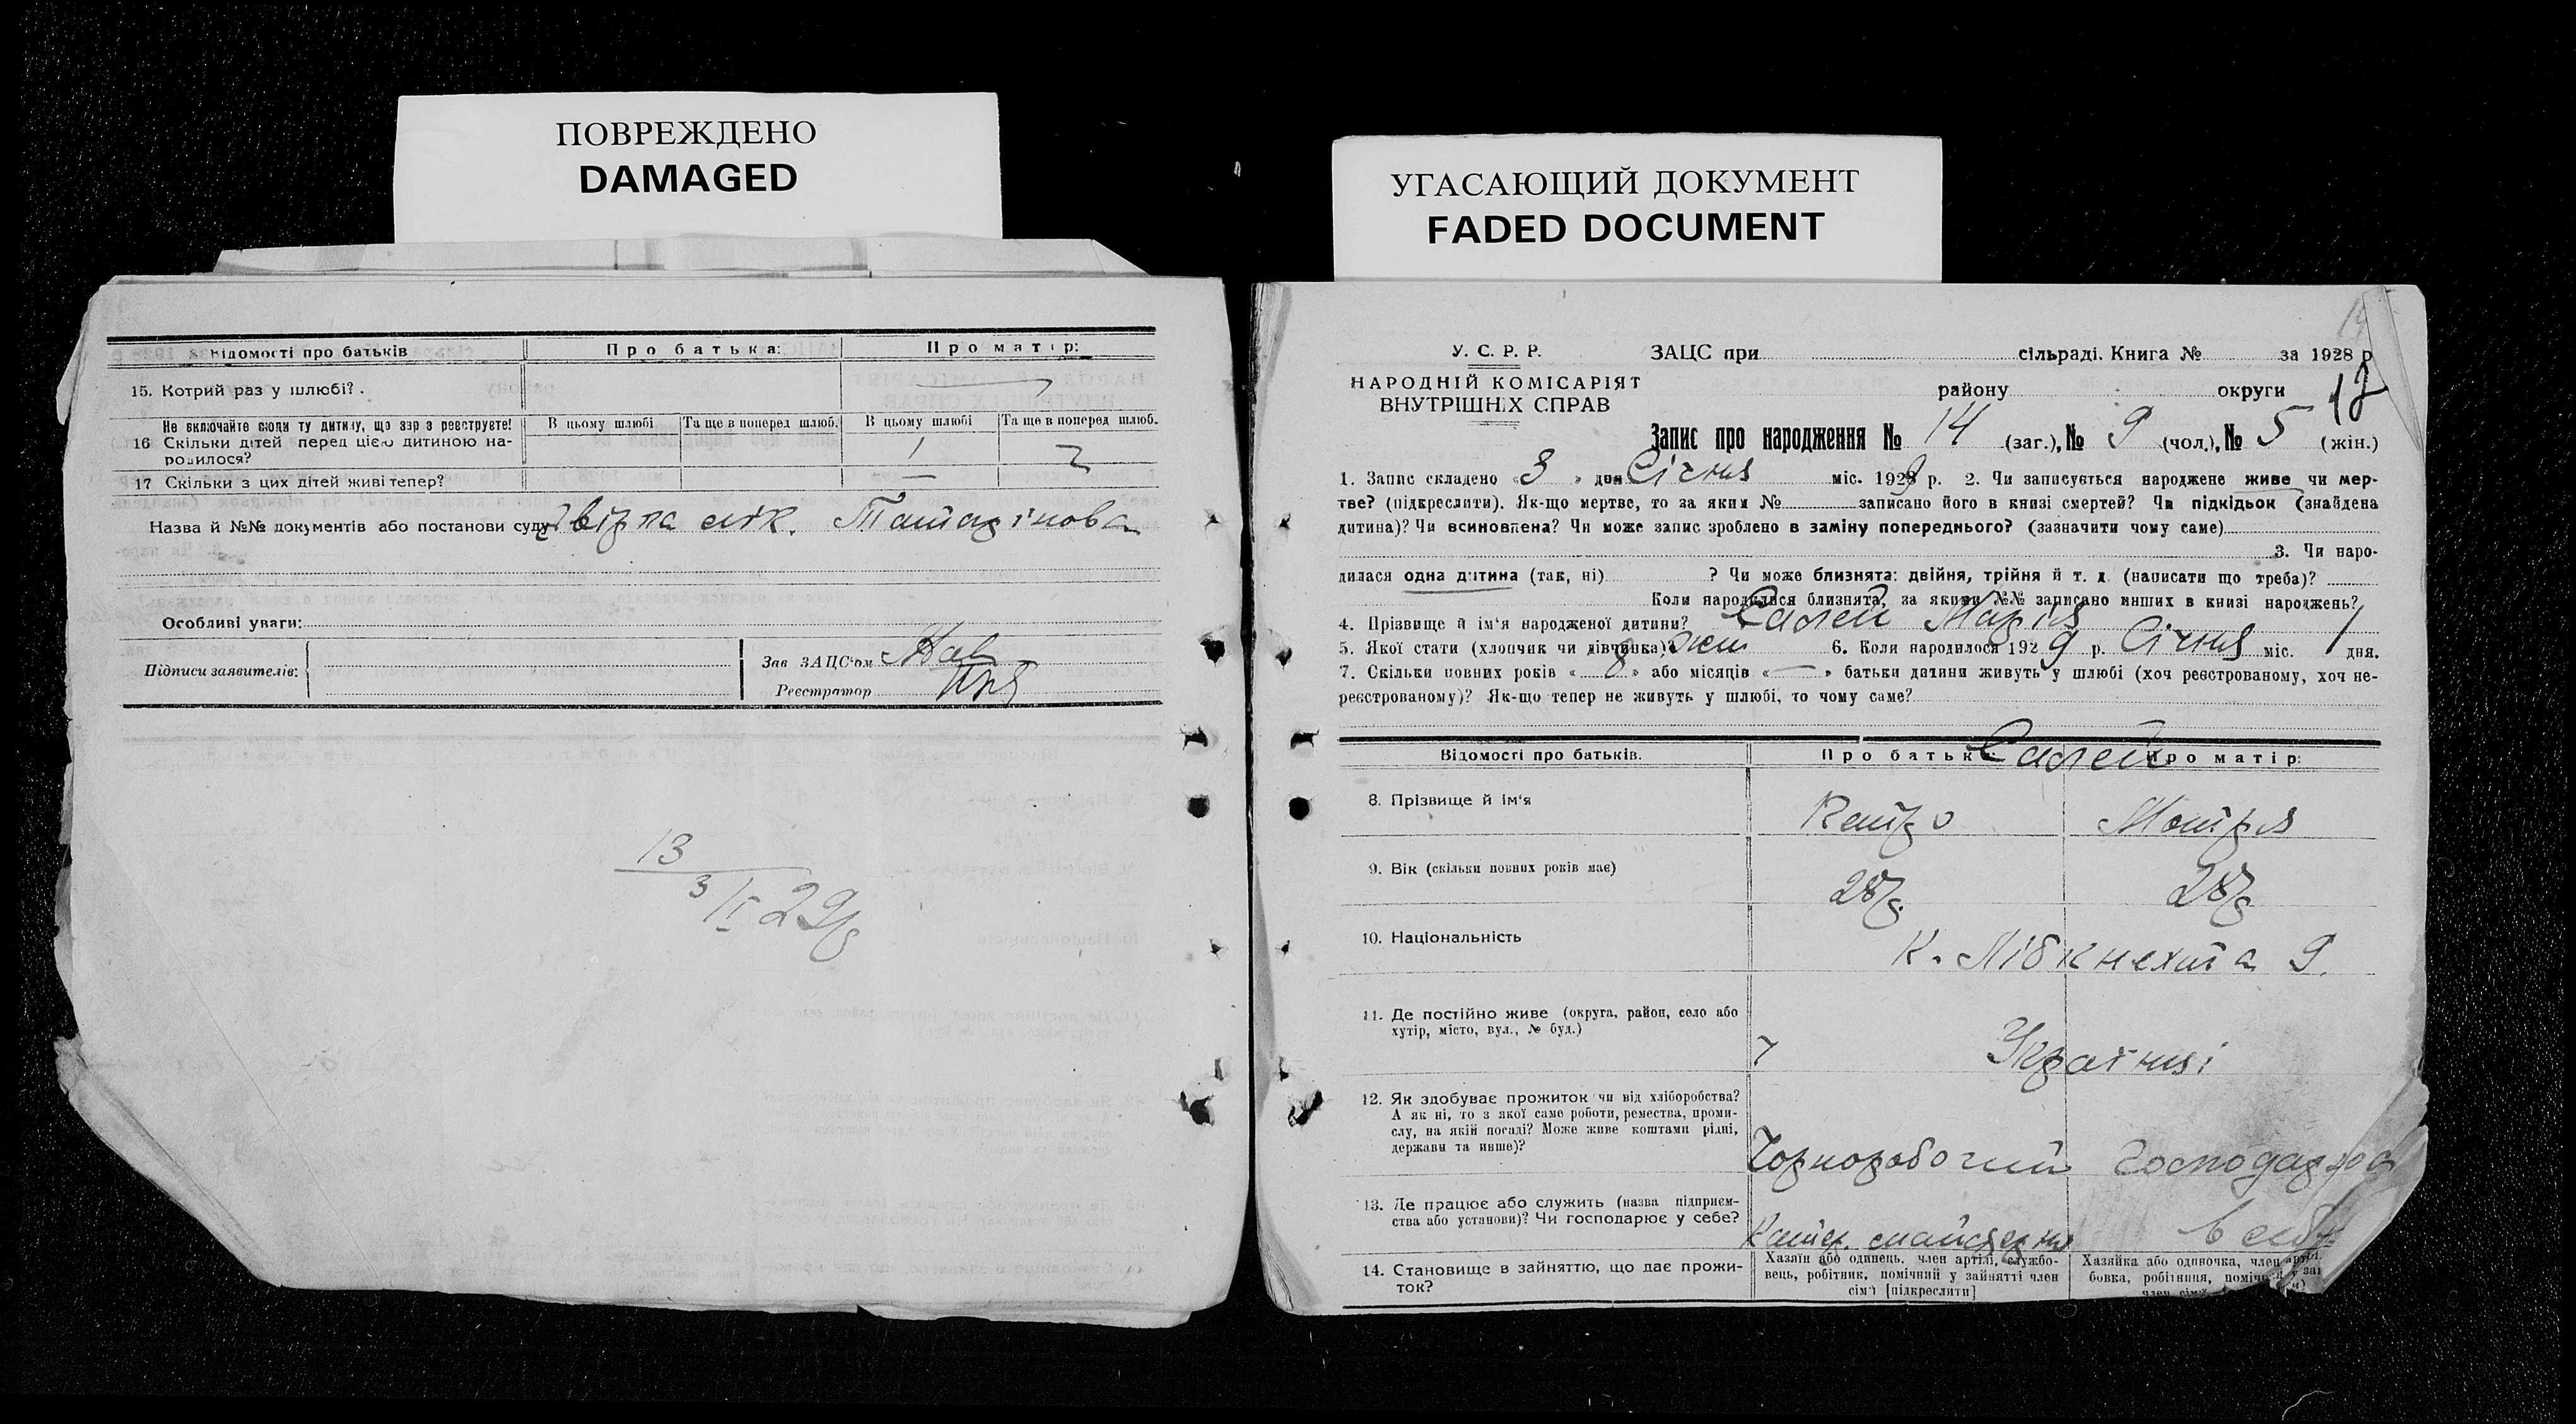 ПОВРЕЖДЕНО
DAMAGED
Відомості про батьків
Про батька:
Про матір:
15. Котрий раз у шлюбі?
Не включайте сюди ту дитину, що зараз реєструєте!
16 Скільки дітей перед цією дитиною на-
родилося?
В цьому шлюбі
Та ще в поперед шлюб.
В цьому шлюбі
Та ще в поперед шлюб.
1
2
17 Скільки з цих дітей живі тепер?
—
Назва й №№ документів або постанови суду
Особливі уваги:
Підписи заявителів:
Зав ЗАЦС'ом
Реєстратор
13
3/I 29р
УГАСАЮЩИЙ ДОКУМЕНТ
FADED DOCUMENT
У. С. Р. Р.
НАРОДНІЙ КОМІСАРІЯТ
ВНУТРІШНІХ СПРАВ
ЗАЦС при сільраді. Книга № за 1928 р
району округи
Запис про народження № 14 (заг.), № 9 (чол.), № 5 (жін.)
1. Запис складено «3» дня Січня міс. 1929 р. 2. Чи записується народжене живе чи мер-
тве? (підкреслити). Як-що мертве, то за яким № записано його в книзі смертей? Чи підкідьок (знайдена
дитина)? Чи всиновлена? Чи може запис зроблено в заміну попереднього? (зазначити чому саме)
3. Чи наро-
дилася одна дитина (так, ні) ? Чи може близнята: двійня, трійня й т. д. (написати що треба)?
Коли народилися близнята, за якими №№ записано инших в книзі народжень?
4. Прізвище й ім'я народженої дитини? Салей Марія
5. Якої стати (хлопчик чи дівчинка) жін 6. Коли народилося 1929 р. Січня міс. 1 дня.
7. Скільки повних років «8» або місяців «—» батьки дитини живуть у шлюбі (хоч реєстрованому, хоч не-
реєстрованому)? Як-що тепер не живуть у шлюбі, то чому саме?
Відомості про батьків.
Про батька:
Про матір:
Салей
8. Прізвище й ім'я
Петро
Мотря
9. Вік (скільки повних років має)
28р.
28р.
10. Національність
К. Лібкнехта 9.
11. Де постійно живе (округа, район, село або
хутір, місто, вул., № буд.)
Українці
12. Як здобуває прожиток чи від хліборобства?
А як ні, то з якої саме роботи, ремества, проми-
слу, на якій посаді? Може живе коштами рідні,
держави та инше)?
Чорноробочий
13. Де працює або служить (назва підприєм-
ства або установи)? Чи господарює у себе?
14. Становище в зайняттю, що дає прожи-
ток?
Хазяїн або одинець, член артілі, службо-
вець, робітник, помічний у зайнятті член
сім'ї [підкреслити]
Хазяйка або одиночка, член артіл.
бовка, робітниця,